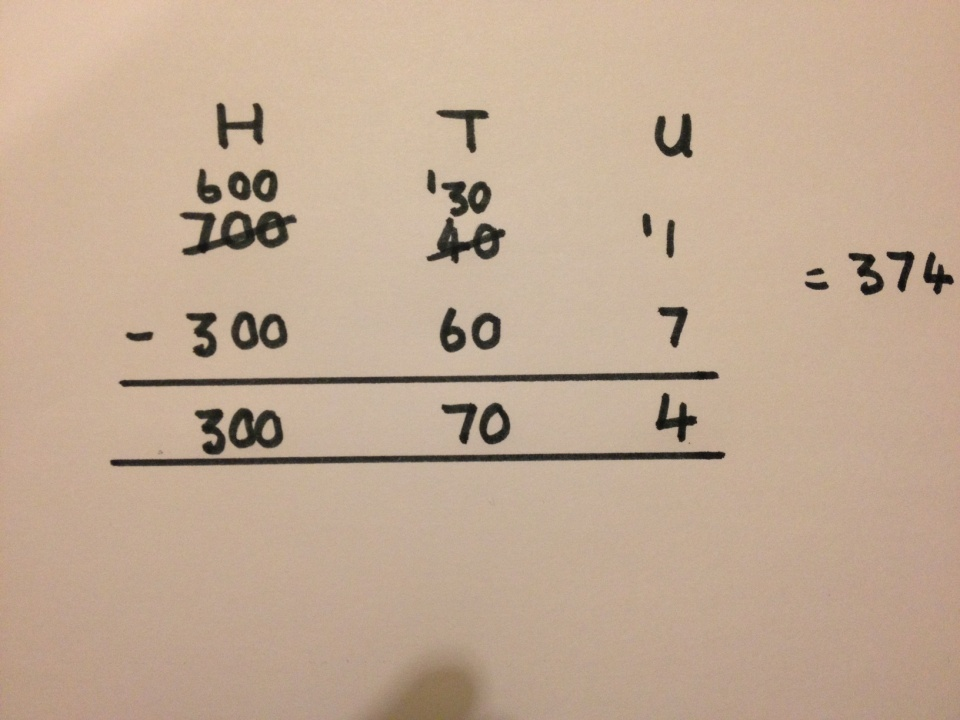 H T U
600 ¹30
700 40 ¹1
= 374
- 300 60 7
300 70 4